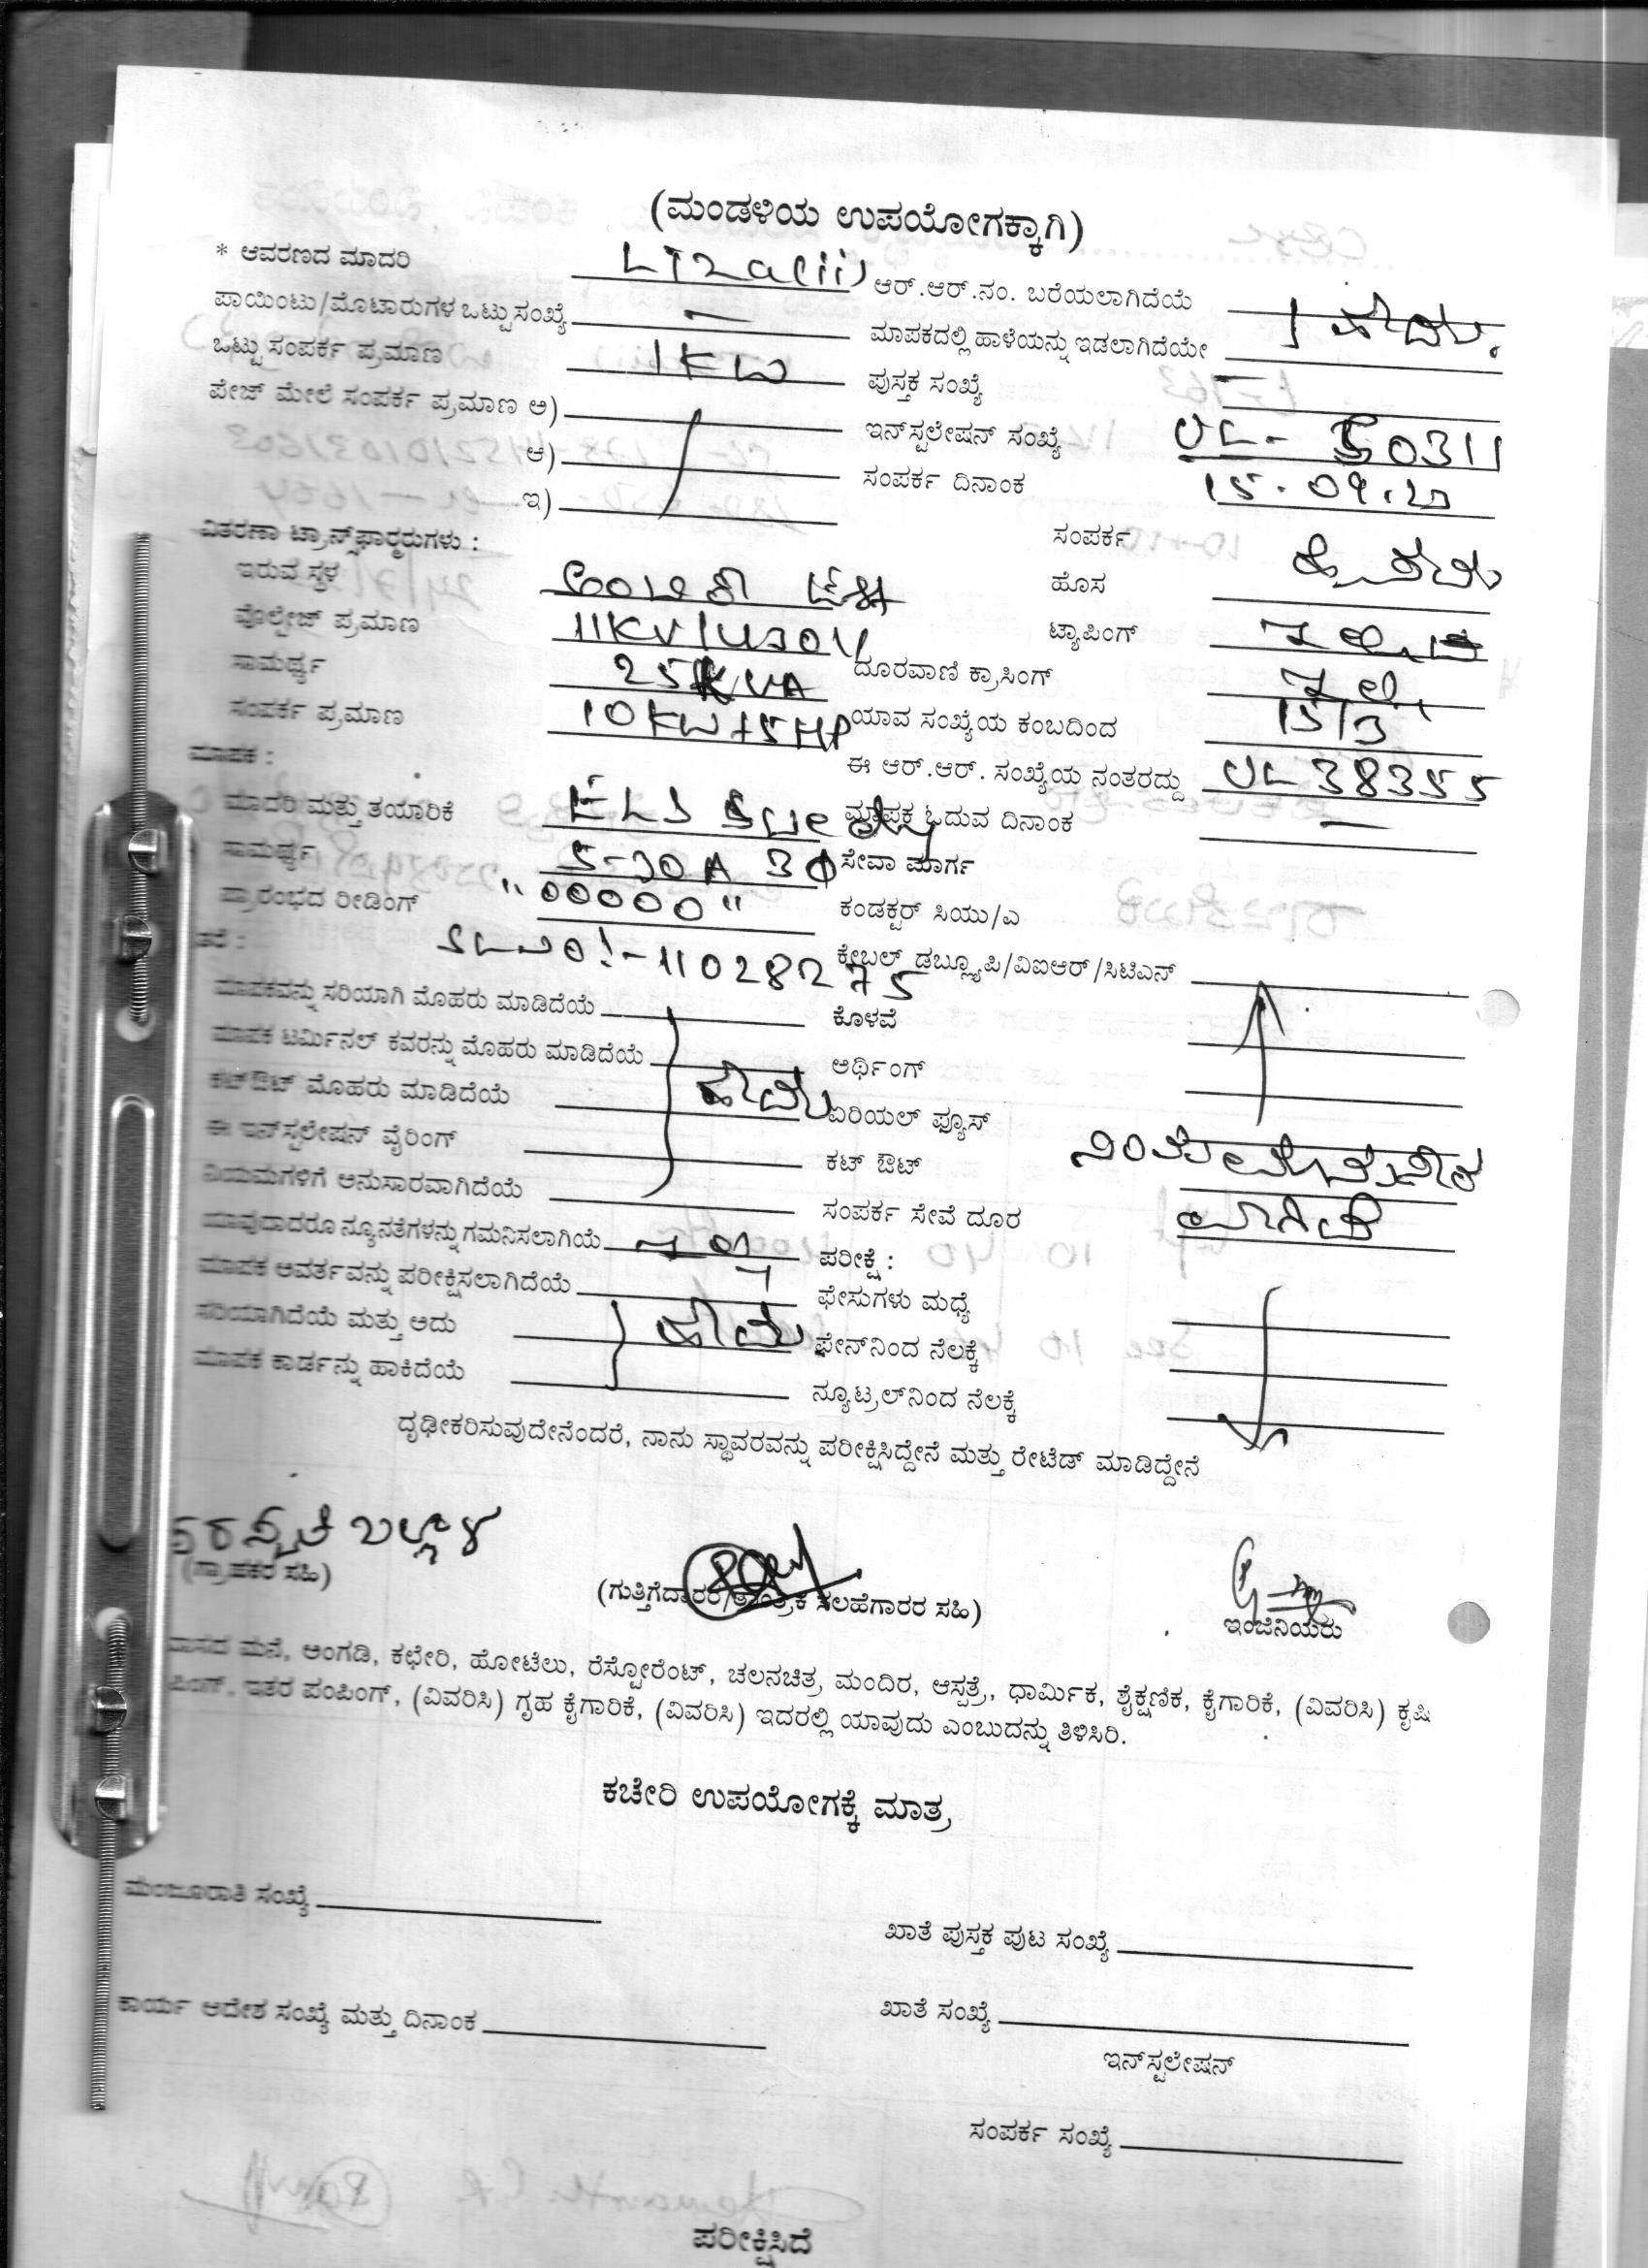 (ಮಂಡಳಿಯ ಉಪಯೋಗಕ್ಕಾಗಿ)
* ಆವರಣದ ಮಾದರಿ LT2a(ii) ಆರ್.ಆರ್.ನಂ. ಬರೆಯಲಾಗಿದೆಯೆ
ಪಾಯಿಂಟು/ಮೊಟಾರುಗಳ ಒಟ್ಟು ಸಂಖ್ಯೆ — ಮಾಪಕದಲ್ಲಿ ಹಾಳೆಯನ್ನು ಇಡಲಾಗಿದೆಯೇ
ಒಟ್ಟು ಸಂಪರ್ಕ ಪ್ರಮಾಣ 1KW ಪುಸ್ತಕ ಸಂಖ್ಯೆ —
ಪೇಜ್ ಮೇಲೆ ಸಂಪರ್ಕ ಪ್ರಮಾಣ ಅ) ಇನ್‌ಸ್ಟಲೇಷನ್ ಸಂಖ್ಯೆ UL- 50311
ಆ) ಸಂಪರ್ಕ ದಿನಾಂಕ 15.09.20
ಇ)
ವಿತರಣಾ ಟ್ರಾನ್ಸ್‌ಫಾರ‍್ಮರುಗಳು : ಸಂಪರ್ಕ
ಇರುವ ಸ್ಥಳ ಹೊಸ
ವೊಲ್ಟೇಜ್ ಪ್ರಮಾಣ 11KV/430V ಟ್ಯಾಪಿಂಗ್
ಸಾಮರ್ಥ್ಯ 25KVA ದೂರವಾಣಿ ಕ್ರಾಸಿಂಗ್
ಸಂಪರ್ಕ ಪ್ರಮಾಣ 10KW+5HP ಯಾವ ಸಂಖ್ಯೆಯ ಕಂಬದಿಂದ 15/3
ಮಾಪಕ : ಈ ಆರ್.ಆರ್. ಸಂಖ್ಯೆಯ ನಂತರದ್ದು UL38355
ಮಾದರಿ ಮತ್ತು ತಯಾರಿಕೆ ಮಾಪಕ ಓದುವ ದಿನಾಂಕ —
ಸಾಮರ್ಥ್ಯ 5-30A 3Φ ಸೇವಾ ಮಾರ್ಗ
ಪ್ರಾರಂಭದ ರೀಡಿಂಗ್ "00000" ಕಂಡಕ್ಟರ್ ಸಿಯು/ಎ
SLNO:-11028275 ಕೇಬಲ್ ಡಬ್ಲ್ಯೂಪಿ/ವಿಐಆರ್/ಸಿಟಿಎಸ್
ಮಾಪಕವನ್ನು ಸರಿಯಾಗಿ ಮೊಹರು ಮಾಡಿದೆಯೆ ಕೊಳವೆ
ಮಾಪಕ ಟರ್ಮಿನಲ್ ಕವರನ್ನು ಮೊಹರು ಮಾಡಿದೆಯೆ ಅರ್ಥಿಂಗ್
ಕಟ್‌ಔಟ್ ಮೊಹರು ಮಾಡಿದೆಯೆ ಏರಿಯಲ್ ಫ್ಯೂಸ್
ಈ ಇನ್‌ಸ್ಟಲೇಷನ್ ವೈರಿಂಗ್ ಕಟ್ ಔಟ್
ನಿಯಮಗಳಿಗೆ ಅನುಸಾರವಾಗಿದೆಯೆ ಸಂಪರ್ಕ ಸೇವೆ ದೂರ
ಯಾವುದಾದರೂ ನ್ಯೂನತೆಗಳನ್ನು ಗಮನಿಸಲಾಗಿಯೆ ಪರೀಕ್ಷೆ :
ಮಾಪಕ ಆವರ್ತವನ್ನು ಪರೀಕ್ಷಿಸಲಾಗಿದೆಯೆ ಫೇಸುಗಳು ಮಧ್ಯೆ
ಸರಿಯಾಗಿದೆಯೆ ಮತ್ತು ಅದು ಫೇನ್‌ನಿಂದ ನೆಲಕ್ಕೆ
ಮಾಪಕ ಕಾರ್ಡನ್ನು ಹಾಕಿದೆಯೆ ನ್ಯೂಟ್ರಲ್‌ನಿಂದ ನೆಲಕ್ಕೆ
ದೃಢೀಕರಿಸುವುದೇನೆಂದರೆ, ನಾನು ಸ್ಥಾವರವನ್ನು ಪರೀಕ್ಷಿಸಿದ್ದೇನೆ ಮತ್ತು ರೇಟೆಡ್ ಮಾಡಿದ್ದೇನೆ
(ಗ್ರಾಹಕರ ಸಹಿ) (ಗುತ್ತಿಗೆದಾರರ/ತಾಂತ್ರಿಕ ಸಲಹೆಗಾರರ ಸಹಿ) ಇಂಜಿನಿಯರು
ಮನೆ, ಅಂಗಡಿ, ಕಛೇರಿ, ಹೋಟೆಲು, ರೆಸ್ಟೋರೆಂಟ್, ಚಲನಚಿತ್ರ ಮಂದಿರ, ಆಸ್ಪತ್ರೆ, ಧಾರ್ಮಿಕ, ಶೈಕ್ಷಣಿಕ, ಕೈಗಾರಿಕೆ, (ವಿವರಿಸಿ) ಕೃಷಿ
ಇತರ ಪಂಪಿಂಗ್, (ವಿವರಿಸಿ) ಗೃಹ ಕೈಗಾರಿಕೆ, (ವಿವರಿಸಿ) ಇದರಲ್ಲಿ ಯಾವುದು ಎಂಬುದನ್ನು ತಿಳಿಸಿರಿ.
ಕಚೇರಿ ಉಪಯೋಗಕ್ಕೆ ಮಾತ್ರ
ಮಂಜೂರಾತಿ ಸಂಖ್ಯೆ
ಖಾತೆ ಪುಸ್ತಕ ಪುಟ ಸಂಖ್ಯೆ
ಕಾರ್ಯ ಆದೇಶ ಸಂಖ್ಯೆ ಮತ್ತು ದಿನಾಂಕ
ಖಾತೆ ಸಂಖ್ಯೆ
ಇನ್‌ಸ್ಟಲೇಷನ್
ಸಂಪರ್ಕ ಸಂಖ್ಯೆ
ಪರೀಕ್ಷಿಸಿದೆ